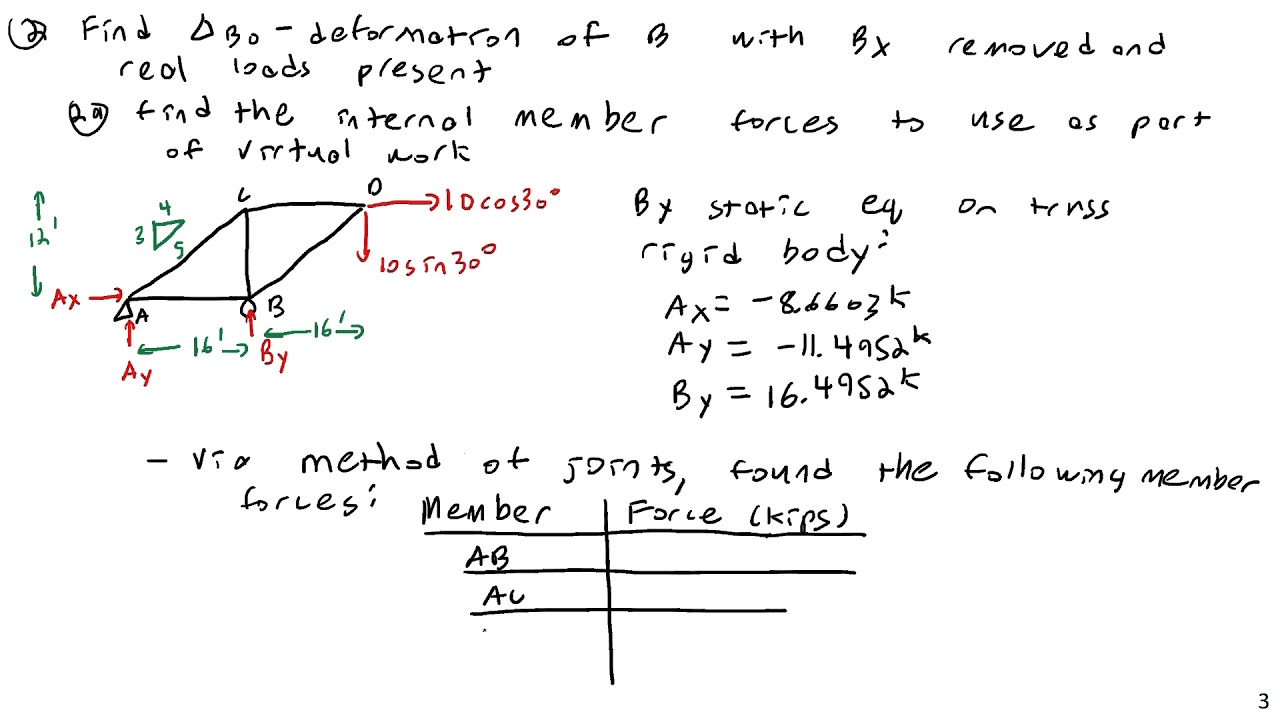 ② Find ΔB0 - deformation of B with Bx removed and
real loads present
②a Find the internal member forces to use as part
of virtual work
12'
3 4 5
C
D
10cos30°
10sin30°
Ax
A
B
16'
16'
Ay
By
By static eq on truss
rigid body:
Ax = -8.6603k
Ay = -11.4952k
By = 16.4952k
- Via method of joints, found the following member
forces:
Member Force (kips)
AB
AC
3